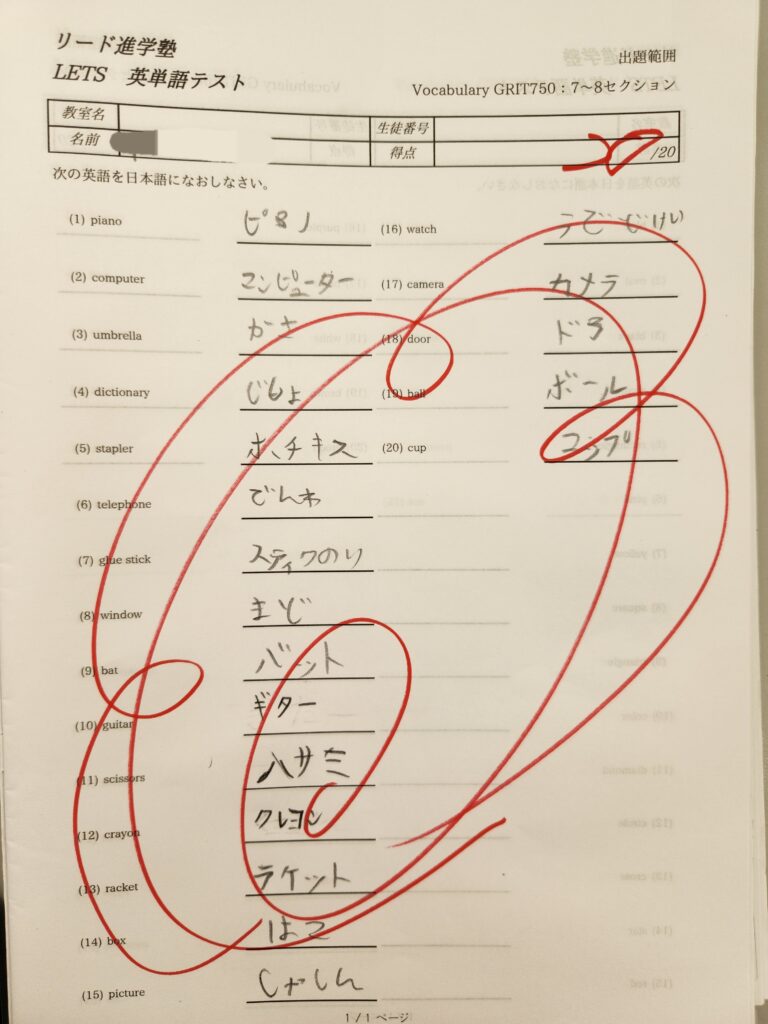 リード進学塾
LETS 英単語テスト
出題範囲
Vocabulary GRIT750：7～8セクション
教室名 生徒番号
名前 得点 20 /20
次の英語を日本語になおしなさい。
(1) piano ピアノ
(2) computer コンピューター
(3) umbrella かさ
(4) dictionary じしょ
(5) stapler ホチキス
(6) telephone でんわ
(7) glue stick スティクのり
(8) window まど
(9) bat バット
(10) guitar ギター
(11) scissors ハサミ
(12) crayon クレヨン
(13) racket ラケット
(14) box はこ
(15) picture しゃしん
(16) watch うでどけい
(17) camera カメラ
(18) door ドア
(19) ball ボール
(20) cup コップ
1 / 1 ページ